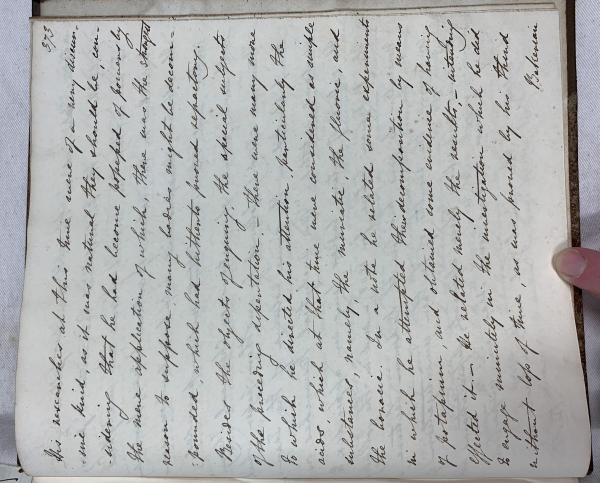 373
His researches at this time were of a very discur-
sive kind, as it was natural they should be, con-
sidering that he had become possessed of powers by
the mere application of which, there was the strongest
reason to suppose many bodies might be decom-
pounded, which had hitherto proved refractory
Besides the objects of enquiry the special subjects
of the preceding dissertation – there were many more
to which he directed his attention, particularly the
acids, which at that time were considered as simple
substances, namely, the muriatic, the fluoric, and
the boracic. In a note he related some experiments
in which he attempted their decomposition by means
of potassium and obtained some evidence of having
effected it. – He related merely the results, – intending
to engage minutely in the investigation which he did
without loss of time, as was proved by his third
Bakerian